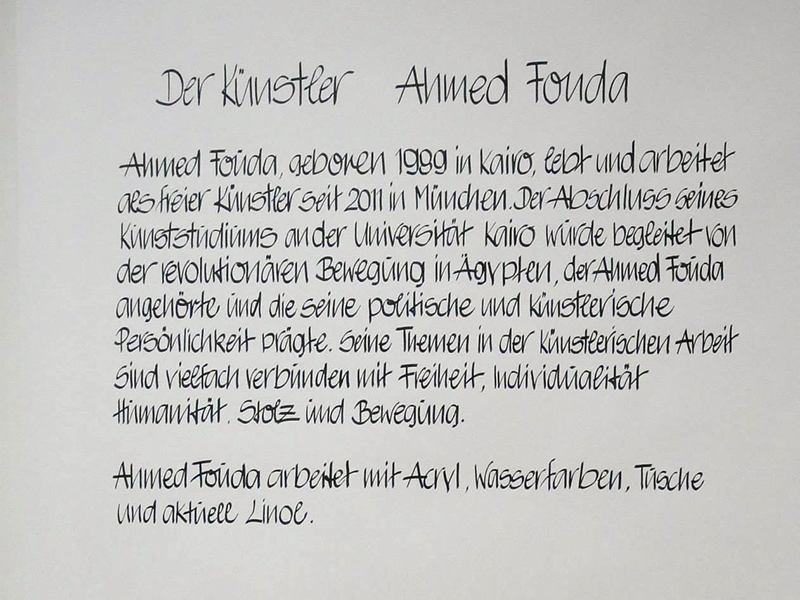 Der Künstler Ahmed Fouda
Ahmed Fouda, geboren 1989 in Kairo, lebt und arbeitet
als freier Künstler seit 2011 in München. Der Abschluss seines
Kunststudiums an der Universität Kairo wurde begleitet von
der revolutionären Bewegung in Ägypten, der Ahmed Fouda
angehörte und die seine politische und künstlerische
Persönlichkeit prägte. Seine Themen in der künstlerischen Arbeit
sind vielfach verbunden mit Freiheit, Individualität
Humanität, Stolz und Bewegung.
Ahmed Fouda arbeitet mit Acryl, Wasserfarben, Tusche
und aktuell Linol.